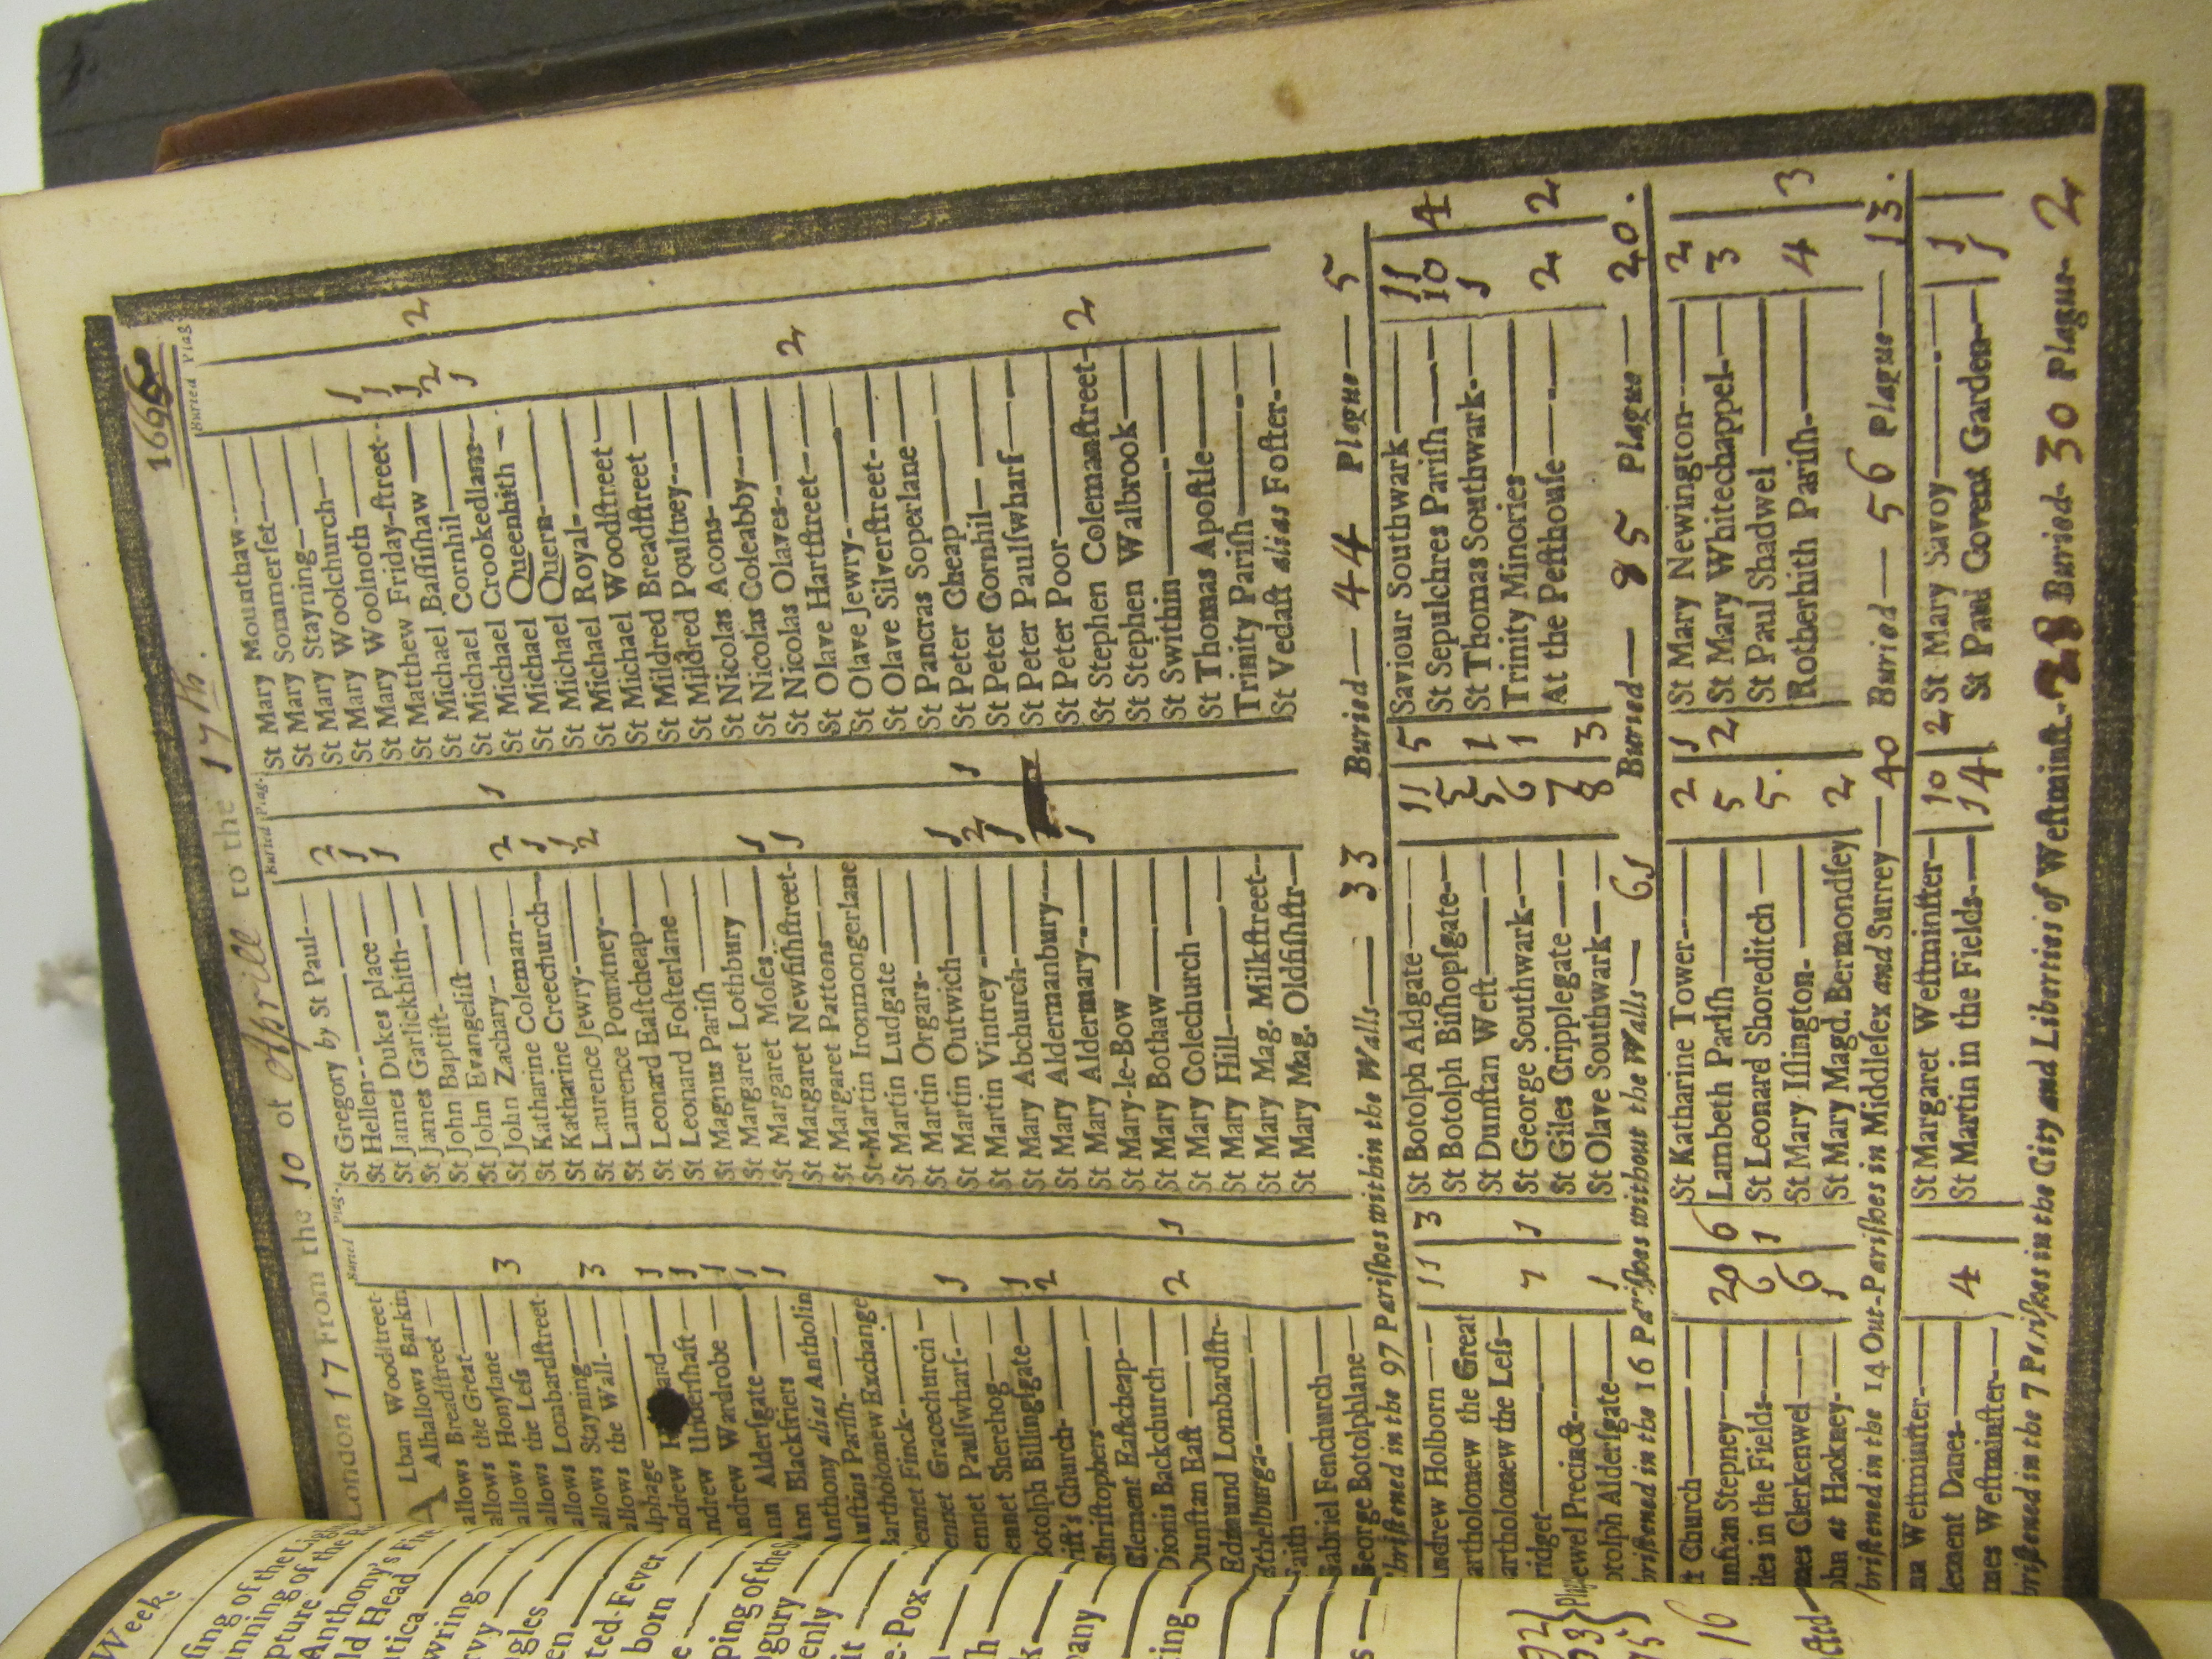 London 17 From the 10 of Aprill to the 17th. 1666
Buried Plag.
Lban Woodstreet
Alhallows Barkin
allows Breadstreet
allows the Great
allows Honylane
allows the Less 3
allows Lombardstreet
allows Stayning
allows the Wall 3
lphage
ndrew 1
ndrew Undershaft 1
ndrew Wardrobe 1
Ann Aldersgate 1
Ann Blackfriers 1
Anthony alias Antholin
Austins Parish
Bartholomew Exchange
ennet Finck
ennet Gracechurch
ennet Paulswharf 1
ennet Sherehog
otolph Billingsgate 1
ist's Church 2
Christophers
Clement Eastcheap
Dionis Backchurch
Dunstan East 2 1
Edmund Lombardstr
Ethelburga
Faith
Gabriel Fenchurch
George Botolphlane
Buried Plag.
St Gregory by St Paul 2
St Hellen 1
St James Dukes place 1
St James Garlickhith
St John Baptist
St John Evangelist
St John Zachary
St Katharine Coleman 2 1
St Katharine Creechurch 1
St Laurence Jewry 2
St Laurence Pountney
St Leonard Eastcheap
St Leonard Fosterlane
St Magnus Parish
St Margaret Lothbury
St Margaret Moses 1
St Margaret Newfishstreet 1
St Margaret Pattons
St Martin Ironmongerlane
St Martin Ludgate
St Martin Orgars
St Martin Outwich 1 1
St Martin Vintrey 2
St Mary Abchurch 1
St Mary Aldermanbury
St Mary Aldermary 1
St Mary-le-Bow
St Mary Bothaw
St Mary Colechurch
St Mary Hill
St Mary Mag. Milkstreet
St Mary Mag. Oldfishstr
Buried Plag.
St Mary Mounthaw
St Mary Sommerset
St Mary Stayning
St Mary Woolchurch
St Mary Woolnoth 1
St Mary Friday-street 1
St Matthew
St Michael Bassishaw 1
St Michael Cornhil 2 2
St Michael Crookedlane 1
St Michael Queenhith
St Michael Quern
St Michael Royal
St Michael Woodstreet
St Mildred Breadstreet
St Mildred Poultrey
St Nicolas Acons
St Nicolas Coleabby
St Nicolas Olaves 2
St Olave Hartstreet
St Olave Jewry
St Olave Silverstreet
St Pancras Soperlane
St Peter Cheap
St Peter Cornhil
St Peter Paulswharf
St Peter Poor
St Stephen Colemanstreet 2
St Stephen Walbrook
St Swithin
St Thomas Apostle
Trinity Parish
St Vedast alias Foster
bristened in the 97 Parishes within the Walls 33 Buried 44 Plague 5
ndrew Holborn 11 3
artholomew the Great
artholomew the Less
ridget 7 1
ewel Precinct
otolph Aldersgate 1
St Botolph Aldgate 11 5
St Botolph Bishopsgate 5
St Dunstan West 5 1
St George Southwark 6 1
St Giles Cripplegate 7
St Olave Southwark 8 3
Saviour Southwark 11
St Sepulchres Parish 10 4
St Thomas Southwark 1
Trinity Minories
At the Pesthouse 2 2
bristened in the 16 Parishes without the Walls 61 Buried 85 Plague 20.
t Church
unstan Stepney 20 6
iles in the Fields 6 1
mes Clerkenwel 6
ohn at Hackney 1
St Katharine Tower 2 1
Lambeth Parish 5 2
St Leonard Shoreditch 5
St Mary Islington
St Mary Magd. Bermondsey 2
St Mary Newington 2
St Mary Whitechappel 3
St Paul Shadwel
Rotherhith Parish 4 3
bristened in the 14 Out-Parishes in Middlesex and Surrey 40 Buried 56 Plague 13.
na Westminster
lement Danes 4
mes Westminster
St Margaret Westminster 10 2
St Martin in the Fields 14
St Mary Savoy 1
St Paul Covent Garden 1
bristened in the 7 Parishes in the City and Liberties of Westminst. 28 Buried 30 Plague 2
Week.
sing of the Lig
unning of the
pture
Anthony's Fire
ld Head
tica
wring
rvy
ngles
en
ted-Fever
born
ping of the S
ngury
enly
it
e-Pox
pany
ting
16
cted